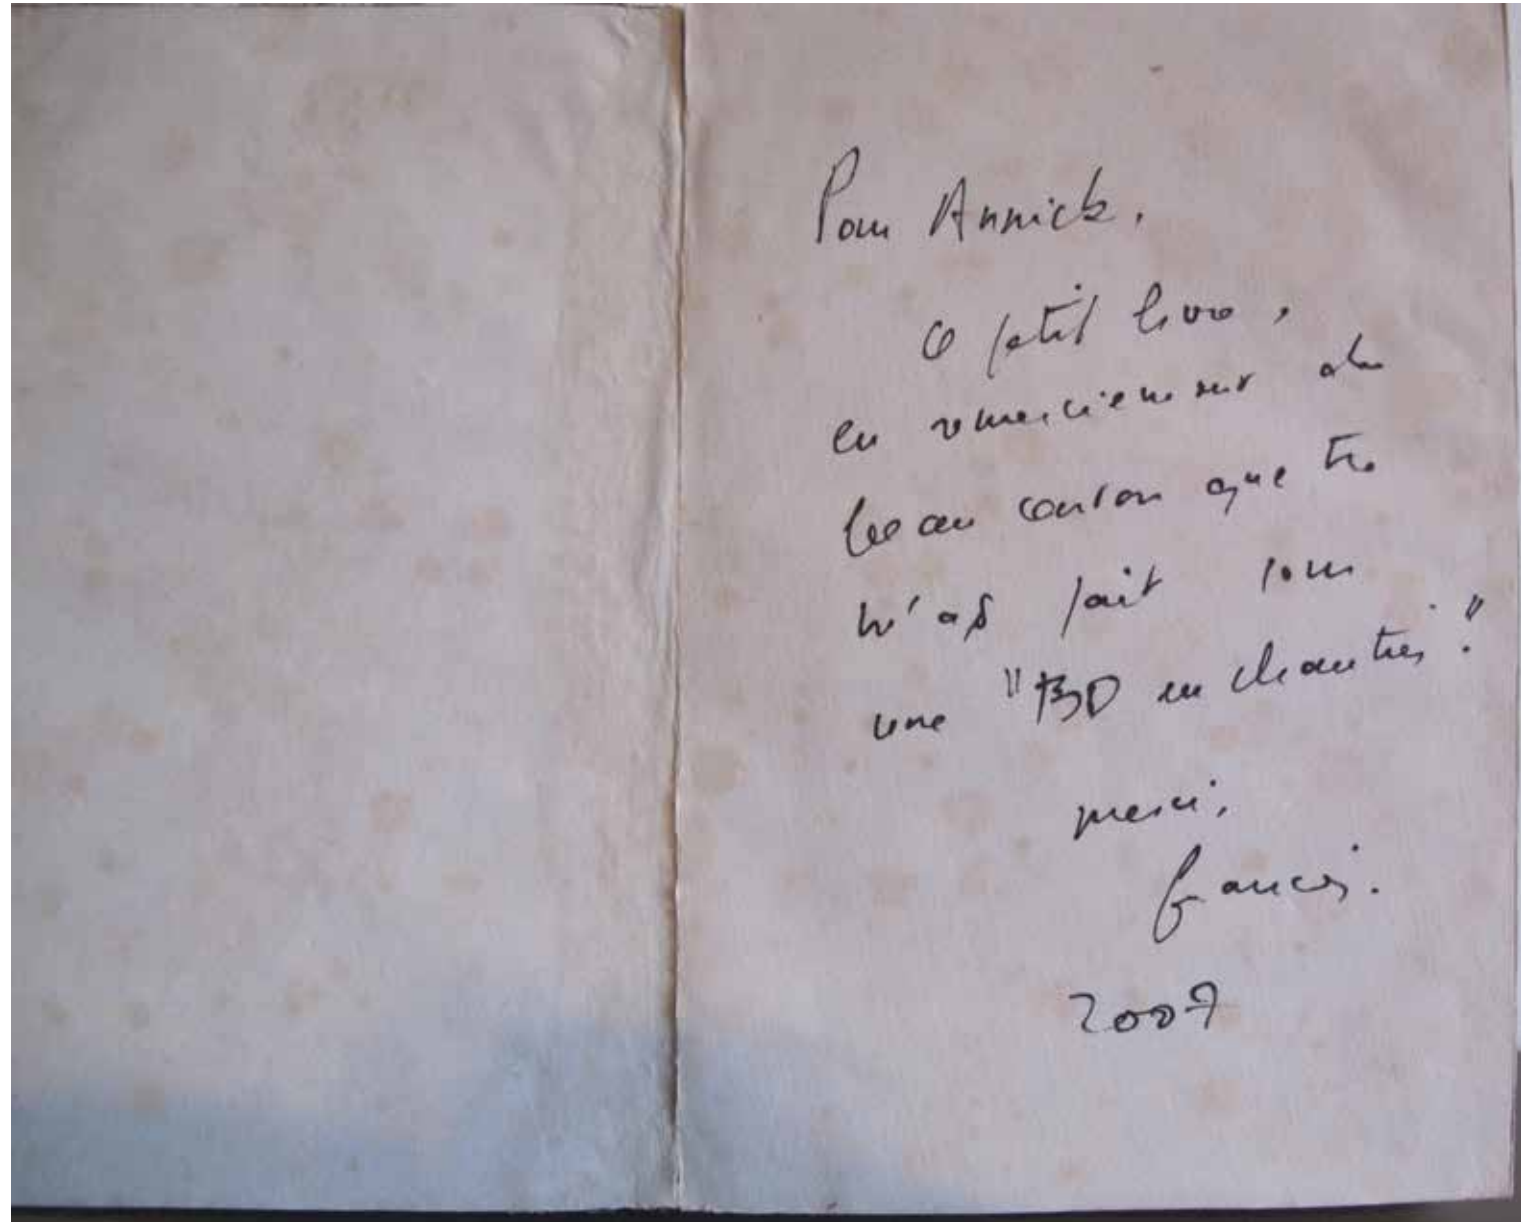 Pour Annick,
Ce petit livre,
en remerciement du
beau carton que tu
m'as fait pour
une "BD en chantier."
merci,
Francis.
2007